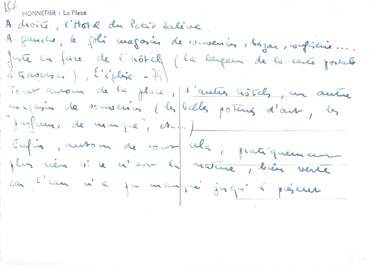 MONNETIER : La Place
A droite, l'Hotel du Petit Salève
A gauche, le joli magasin de souvenirs, bazar, confiserie....
Juste en face de l'hôtel (la largeur de la carte postale
à traverser), l'église -
Tout autour de la place, d'autres hôtels, un autre
magasin de souvenirs (les belles poteries d'art, les
"parfums de marque", etc...)
Enfin, autour de tout cela, pratiquement
plus rien si ce n'est la nature, bien verte
car l'eau n'a pas manqué jusqu'à présent